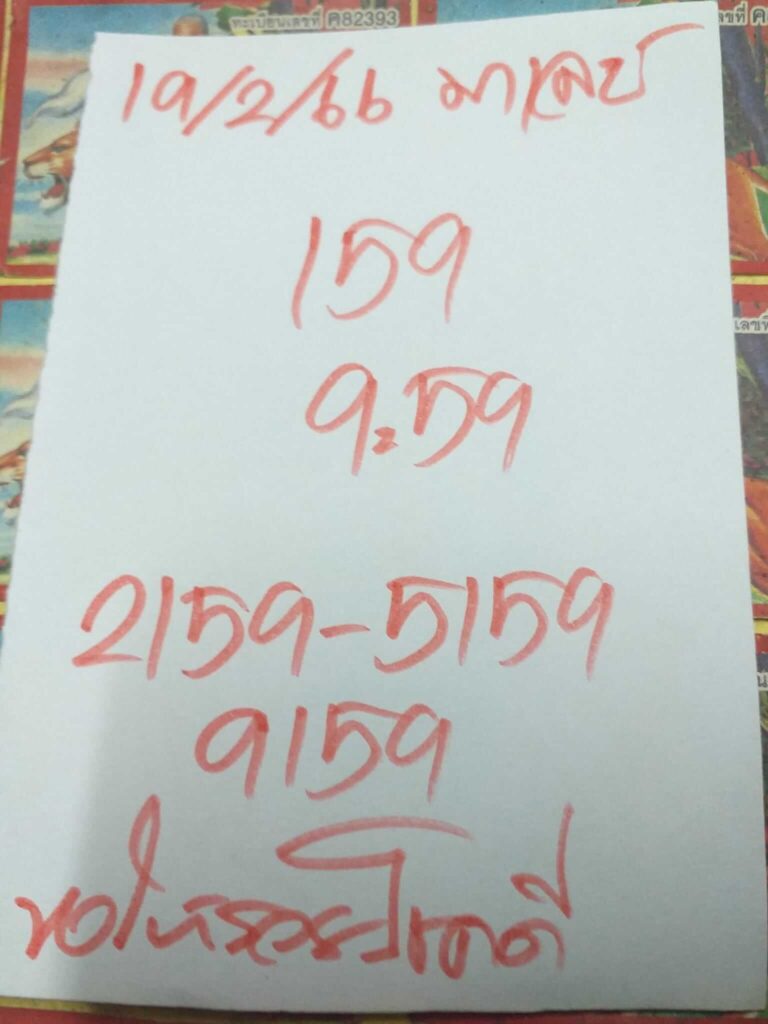 ทะเบียนเลขที่ ค82393
ลขที่ ค
19/2/66 มาเลย์
159
เลขที่
9=59
2159-5159
9159
ขอให้รวยโชคดี